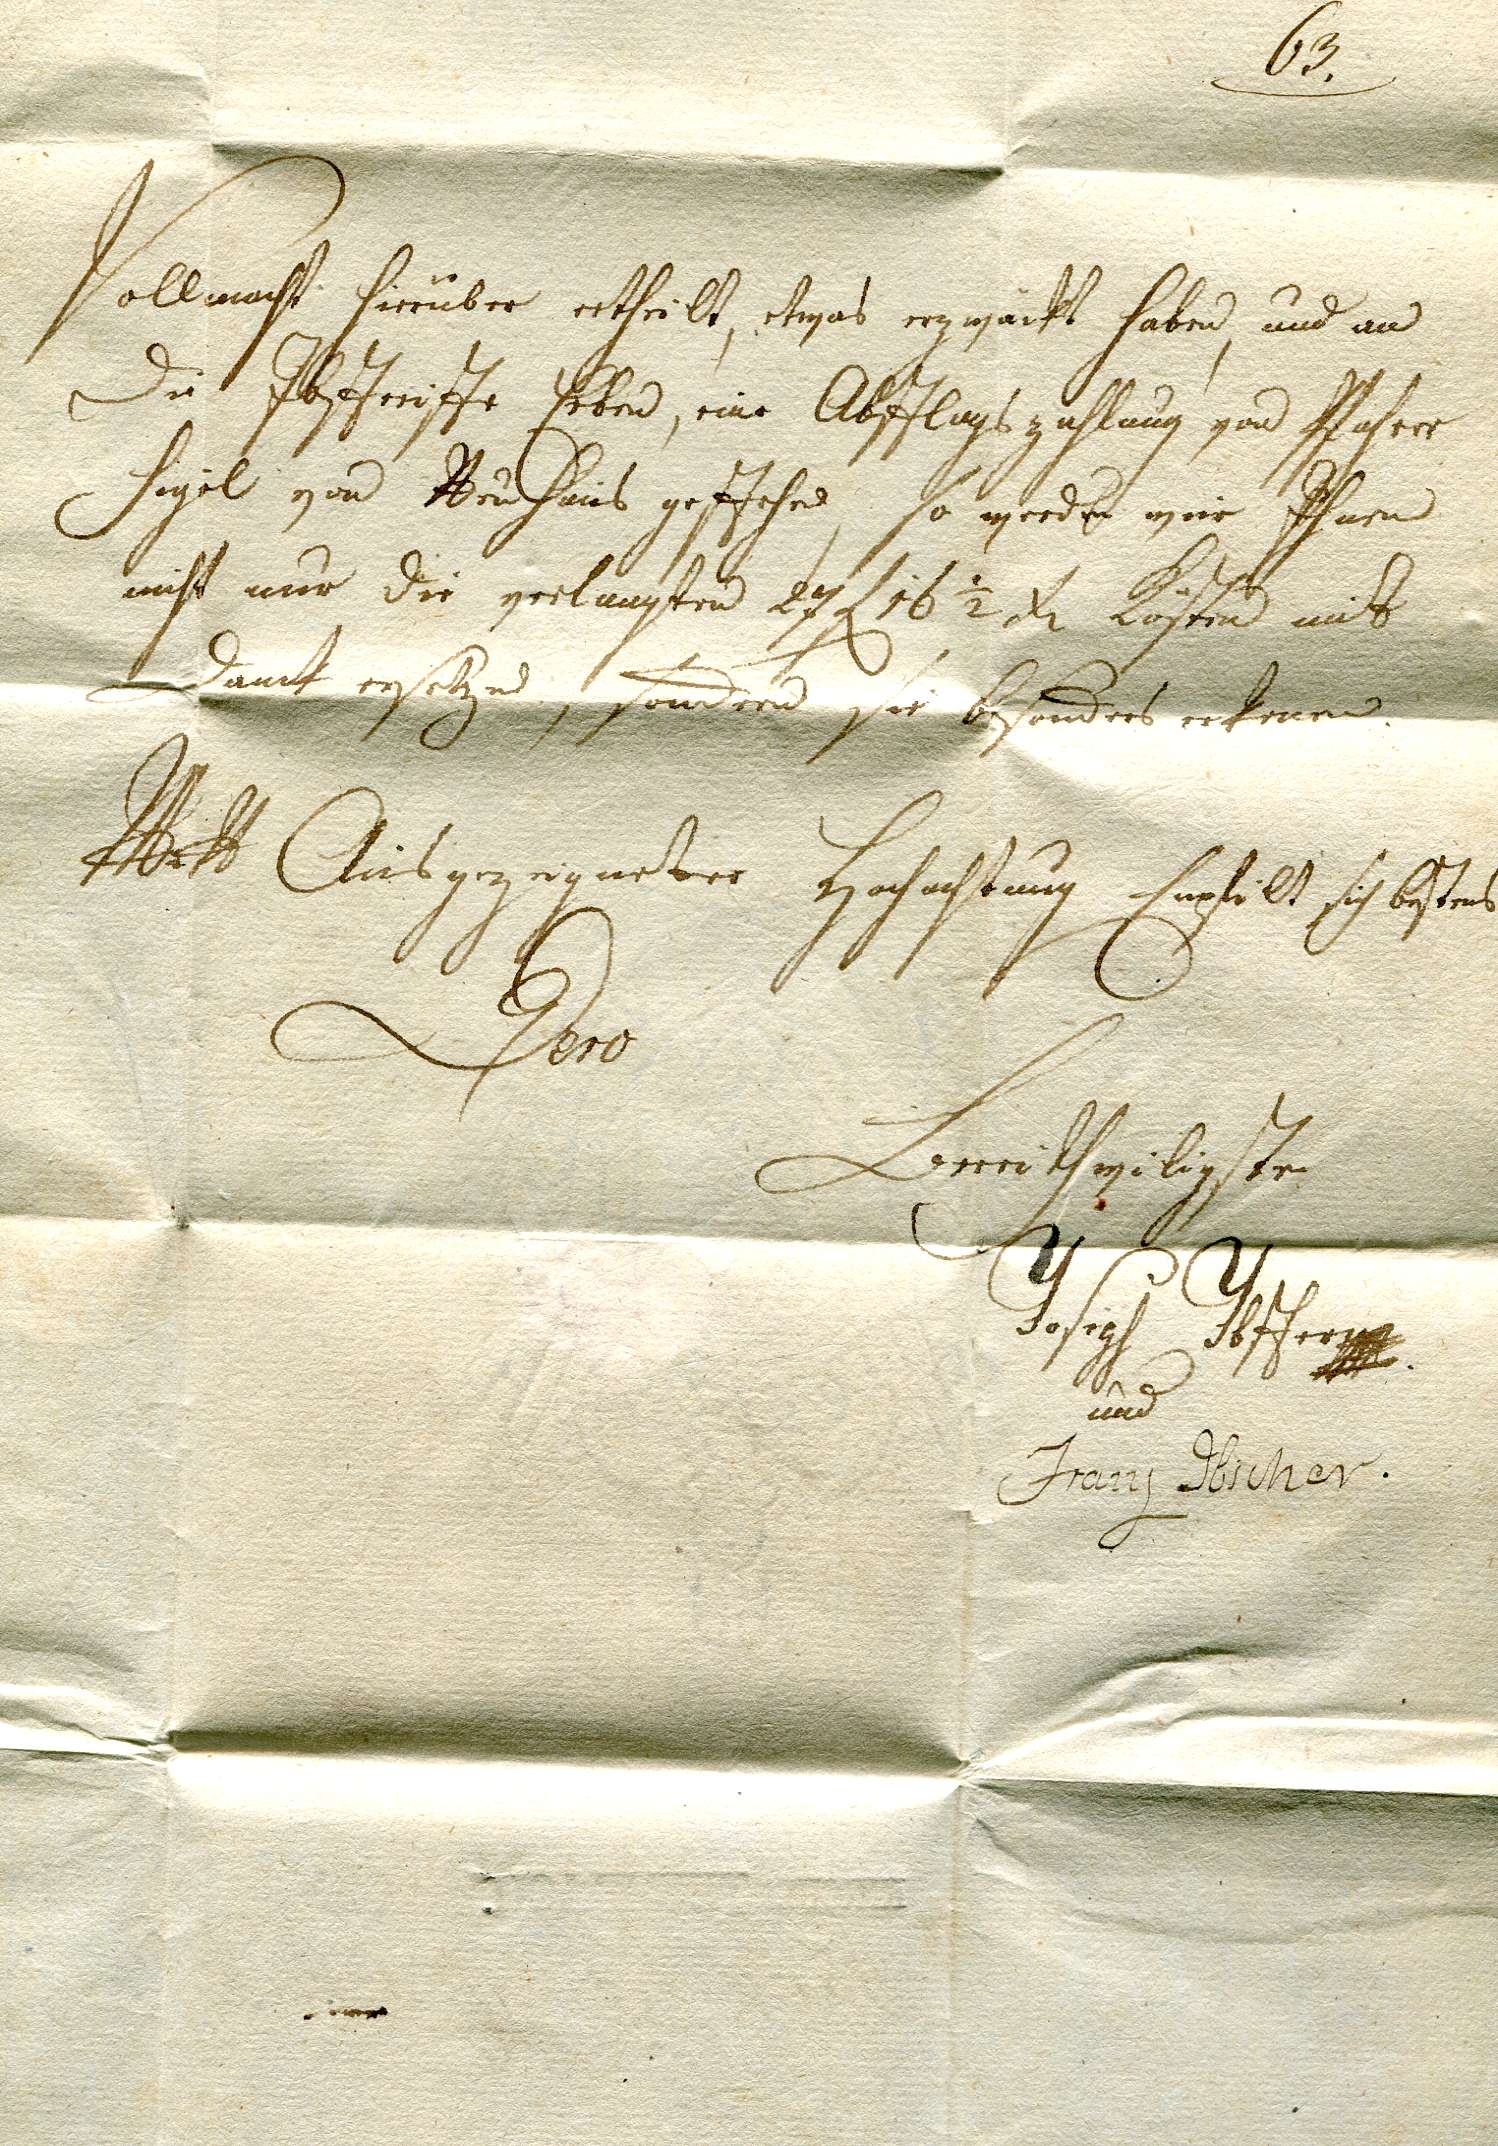 63.
Vollmacht hierüber ertheilt, etwas erzwäckt haben, und an
die Ibscherische Erben, eine Abschlagszahlung von Pfahrer
Higel von Neuhaus geschehen, so werden wir Ihnen
nicht nur die verlangten 27 f 16 ½ xr Kösten mit
Dank ersetzen, sondern sie besonders erkenen.
Mit Ausgezeigneter Hochachtung Empfilt sich bestens
Dero
Bereithwiligste
Joseph Ibscher
und
Franz Ibscher.